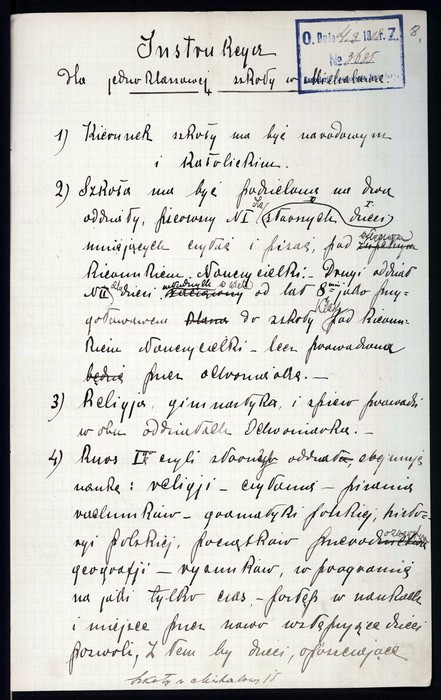 8.
O. Dnia 4/3 19 r. Z.
№ 3685
Instrukcya
dla jedno klasowej szkoły w Michałowie
1) Kierunek szkoły ma być narodowym
i katolickim.
2) Szkoła ma być podzieloną na dwa
oddziały, pierwszy N I starszych dzieci
umiejących czytać i pisać, pod
kierunkiem Nauczycielki. - Drugi oddział
N II dzieci od lat 8 jako przy-
gotowawcza do szkoły pod kierun-
kiem Nauczycielki - lecz prowadzona
będzie przez ochroniarkę. -
3) Religja, gimnastyka, i śpiew prowadzi
w obu oddziałach Ochroniarka. -
4) Kurs I czyli starszy oddział obejmują
nauka: religji - czytania - pisania
rachunków - gramatyki polskiej, histo-
ryi Polskiej, początków
geografji - rysunków, w programie
na jaki tylko czas, postęp w naukach
i miejsce przez nowo wstępujące dzieci
pozwoli, Z tem by dzieci, opuszczające
Szkoły w Michałowie